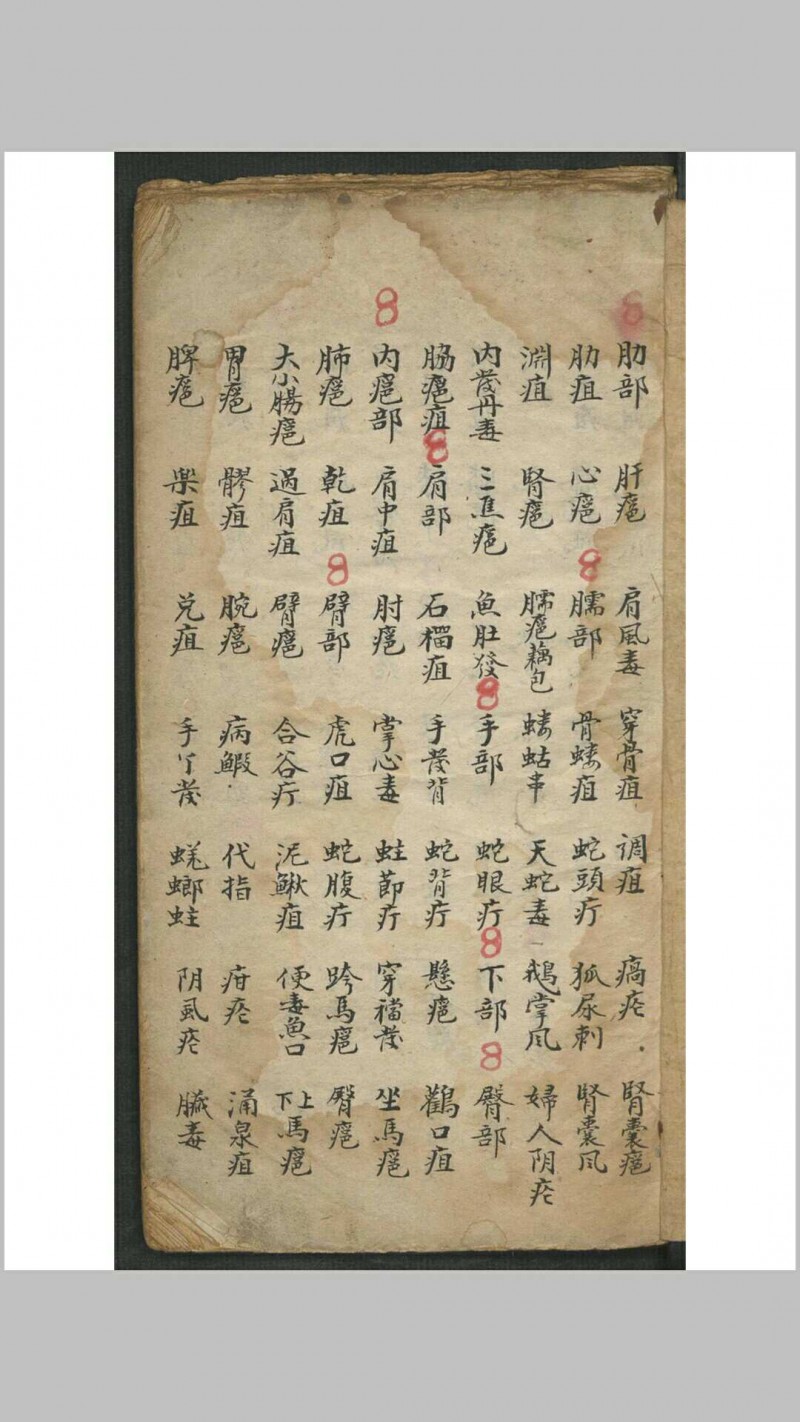 肋部
肋疽
淵疽
内發丹毒
脇癰疽
内癰部
肺癰
大小腸癰
胃癰
脾癰
肝癰
心癰
腎癰
三焦癰
肩部
肩中疽
乾疽
過肩疽
髎疽
樂疽
肩風毒
臑部
臑癰藕包
魚肚發
石榴疽
肘癰
臂部
臂癰
腕癰
兑疽
穿骨疽
骨蝼疽
蝼蛄串
手部
手發背
掌心毒
虎口疽
合谷疔
病鰕
手丫發
调疽
蛇頭疔
天蛇毒
蛇眼疔
蛇背疔
蛀節疔
蛇腹疔
泥鳅疽
代指
蜣螂蛀
瘑疮
狐尿刺
鵝掌风
下部
懸癰
穿襠發
跨馬癰
便毒魚口
疳疮
阴虱疮
腎囊癰
腎囊风
婦人阴疮
臀部
鸛口疽
坐馬癰
臀癰
上下馬癰
涌泉疽
臟毒